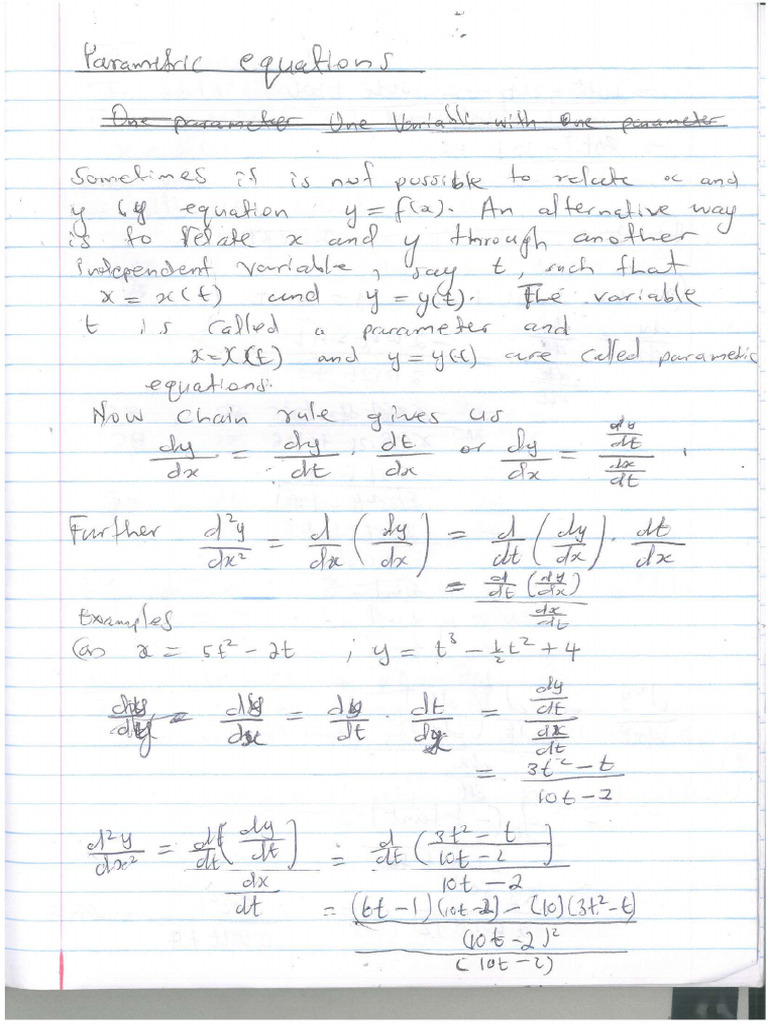 Parametric equations
One parameter One Variable with one parameter
Sometimes it is not possible to relate x and
y by equation y = f(x). An alternative way
is to relate x and y through another
independent variable, say t, such that
x = x(t) and y = y(t). The variable
t is called a parameter and
x = x(t) and y = y(t) are called parametric
equations.
Now chain rule gives us
dy/dx = dy/dt · dt/dx or dy/dx = (dy/dt)/(dx/dt).
Further d²y/dx² = d/dx (dy/dx) = d/dt (dy/dx) · dt/dx
= (d/dt (dy/dx))/(dx/dt)
Examples
(a) x = 5t² - 2t ; y = t³ - ½t² + 4
= dy/dx = dy/dt · dt/dx = (dy/dt)/(dx/dt)
= (3t² - t)/(10t - 2)
d²y/dx² = (d/dt [dy/dt])/(dx/dt) = (d/dt (3t² - t)/(10t - 2))/(10t - 2)
= (((6t - 1)(10t - 2) - (10)(3t² - t))/(10t - 2)²)/(10t - 2)